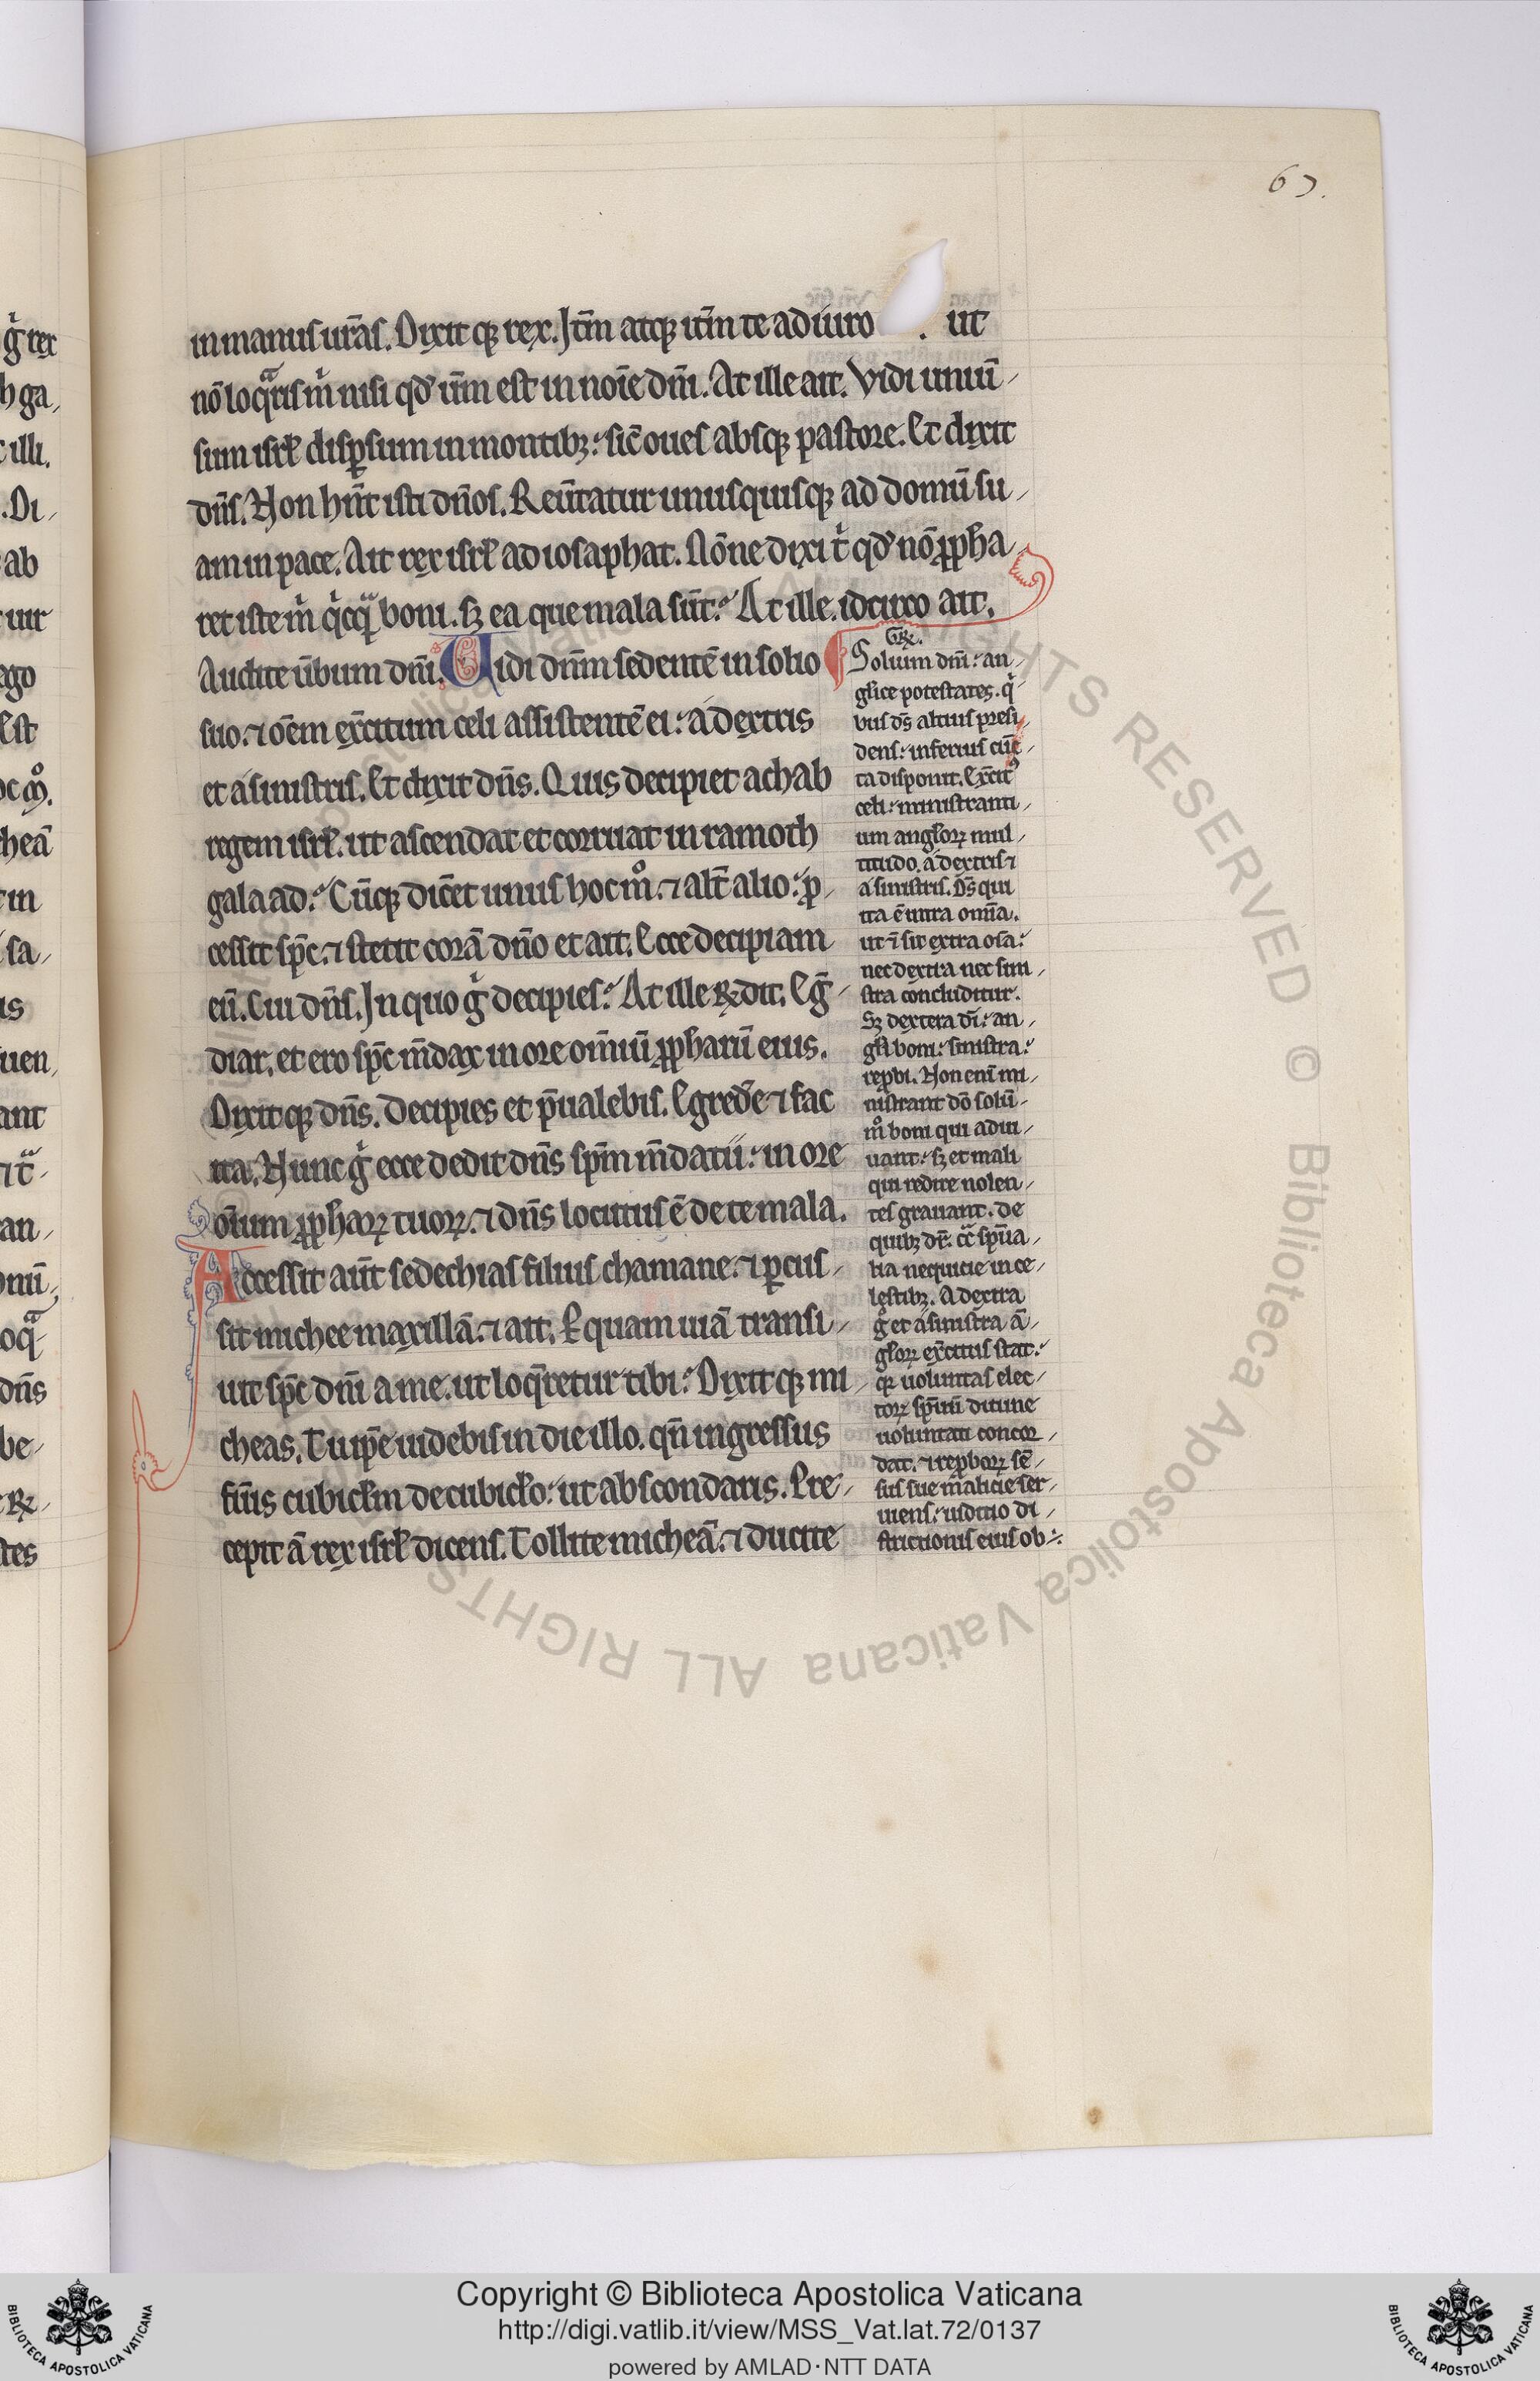 67.
in manus urãs. Dixit qꝫ rex. Itm̃ atqꝫ itm̃ te adiuro . ut
nõ loqͣris m̃ nisi qd' uũm est in noĩe dñi. At ille ait. Vidi uniũ
sum isrl̃ disꝑsum in montibꝫ: sic̃ oues absqꝫ pastore. Et dixit
dñs. Non hñt isti dños. Reũtatur unusquisqꝫ ad domũ su
am in pace. Ait rex isrl̃ ad iosaphat. Nõne dixi t̉ qd' nõ ꝓpha
ret iste m̉ q̉cqͣ boni. sꝫ ea que mala sũt: At ille. idcirco ait.
Audite ũbum dñi. Vidi dñm sedentẽ in solio
suo. ⁊ oẽm exc̃itum celi assistentẽ ei: a dextris
et a sinistris. Et dixit dñs. Quis decipiet achab
regem isrl̃. ut ascendat et corruat in ramoth
galaad: Cũqꝫ dic̃et unus hoc mº. ⁊ alt̃ alio: ꝓ
cessit sp̃c. ⁊ stetit corã dño et ait. Ecce decipiam
eũ. Cui dñs. In quo g̉ decipies: At ille ꝶdit. Eg̃
diar. et ero sp̃c m̃dax in ore omĩũ ꝓpharũ eius.
Dixit qꝫ dñs. Decipies et p̃ualebis. Egred'e ⁊ fac
ita. Nunc g̉ ecce dedit dñs sp̃m m̃datii: in ore
oĩum ꝓphaꝝ tuoꝝ. ⁊ dñs locutus ẽ de te mala.
Accessit aũt sedechias filius chamane. ⁊ ꝑcus
sit michee maxillã. ⁊ ait. P̱ quam uiã transi
uit sp̃c dñi a me. ut loq̃retur tibi: Dixit qꝫ mi
cheas. Tu ip̃e uidebis in die illo. qñ ingressus
fũis cubicl̃m de cubicl̃o: ut abscondaris. Pre
cepit ã rex isrl̃ dicens. Tollite micheã. ⁊ ducite
Gꝶ.
Solium dñi: an
glice potestates. q̉
bus d̃s altius presi
dens: inferius cũc
ta disponit. Exc̃it⁹
celi: ministranti
um angl̃oꝝ mul
titudo. a dextris ⁊
a sinistris. D̃s qui
ita ẽ intra omĩa.
ut ⁊̃ sit extra oĩa:
nec dextra nec sini
stra concluditur.
Sꝫ dextera dĩ: an
gl̃i boni: sinistra:
reꝓbi. Non enĩ mi
nistrant dõ solũ
mº boni qui adiu
uant: sꝫ et mali
qui redire nolen
tes grauant. de
quibꝫ dr̃. cͣ sp̃ua
lia nequicie in ce
lestibꝫ. A dextra
g̉ et a sinistra ã
gl̃oꝝ exc̃itus stat:
qꝫ uoluntas elec
toꝝ sp̃ituũ diuine
uoluntati concor
dat. ⁊ reꝓboꝝ sẽ
sus sue malicie ser
uiens: iudicio di
strictionis eius ob
g̉ rex
h ga
t illi.
. Di
ab
uir
ego
Est
oc mº.
cheã
in
sa
is
uen
ant
⁊ tͣ
an
nũ
oqͣ
dñs
be
ꝶ
tes
Copyright © Biblioteca Apostolica Vaticana
http://digi.vatlib.it/view/MSS_Vat.lat.72/0137
powered by AMLAD·NTT DATA
BIBLIOTECA APOSTOLICA VATICANA
BIBLIOTECA APOSTOLICA VATICANA
© Biblioteca Apostolica Vaticana ALL RIGHTS RESERVED